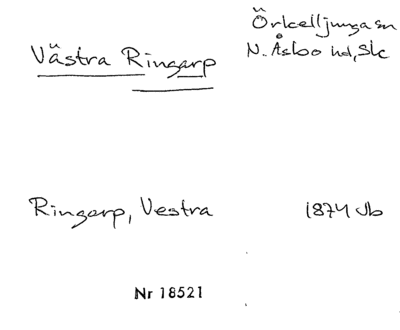 Västra Ringarp
Örkelljunga sn
N. Åsbo hd, Sk
Ringarp, Vestra
1874 Jb
Nr 18521